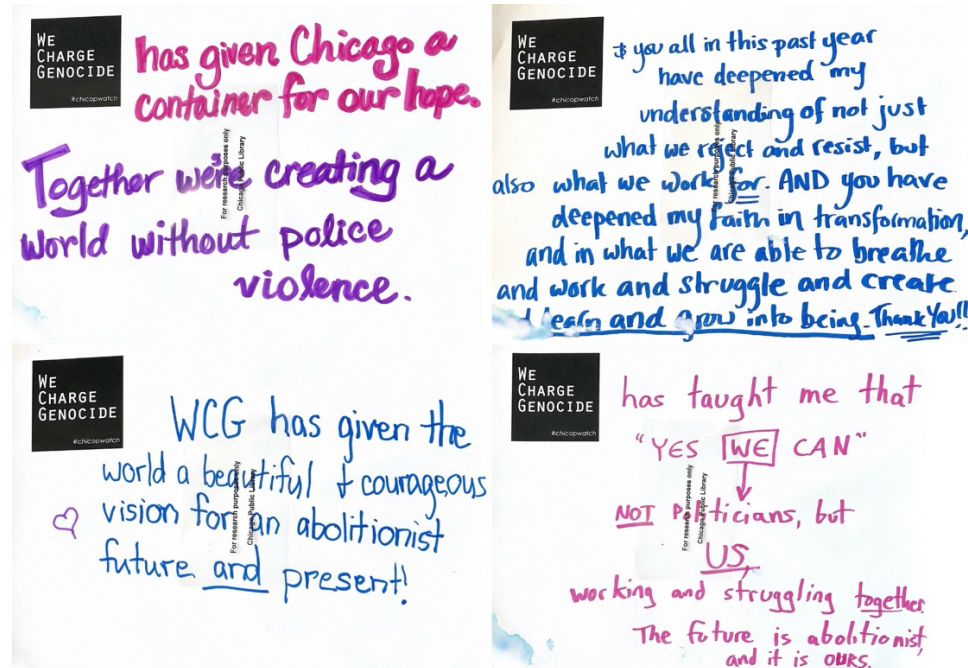 WE
CHARGE
GENOCIDE
#chicopwatch
has given Chicago a
container for our hope.
Together we're creating a
world without police
violence.
For research purposes only
Chicago Public Library
WE
CHARGE
GENOCIDE
#chicopwatch
& you all in this past year
have deepened my
understanding of not just
what we reject and resist, but
also what we work for. AND you have
deepened my faith in transformation,
and in what we are able to breathe
and work and struggle and create
learn and grow into being. Thank You!!
For research purposes only
Chicago Public Library
WE
CHARGE
GENOCIDE
#chicopwatch
WCG has given the
world a beautiful & courageous
vision for an abolitionist
future and present!
For research purposes only
Chicago Public Library
WE
CHARGE
GENOCIDE
#chicopwatch
has taught me that
"YES WE CAN"
NOT Politicians, but
US,
working and struggling together.
The future is abolitionist,
and it is OURS.
For research purposes only
Chicago Public Library